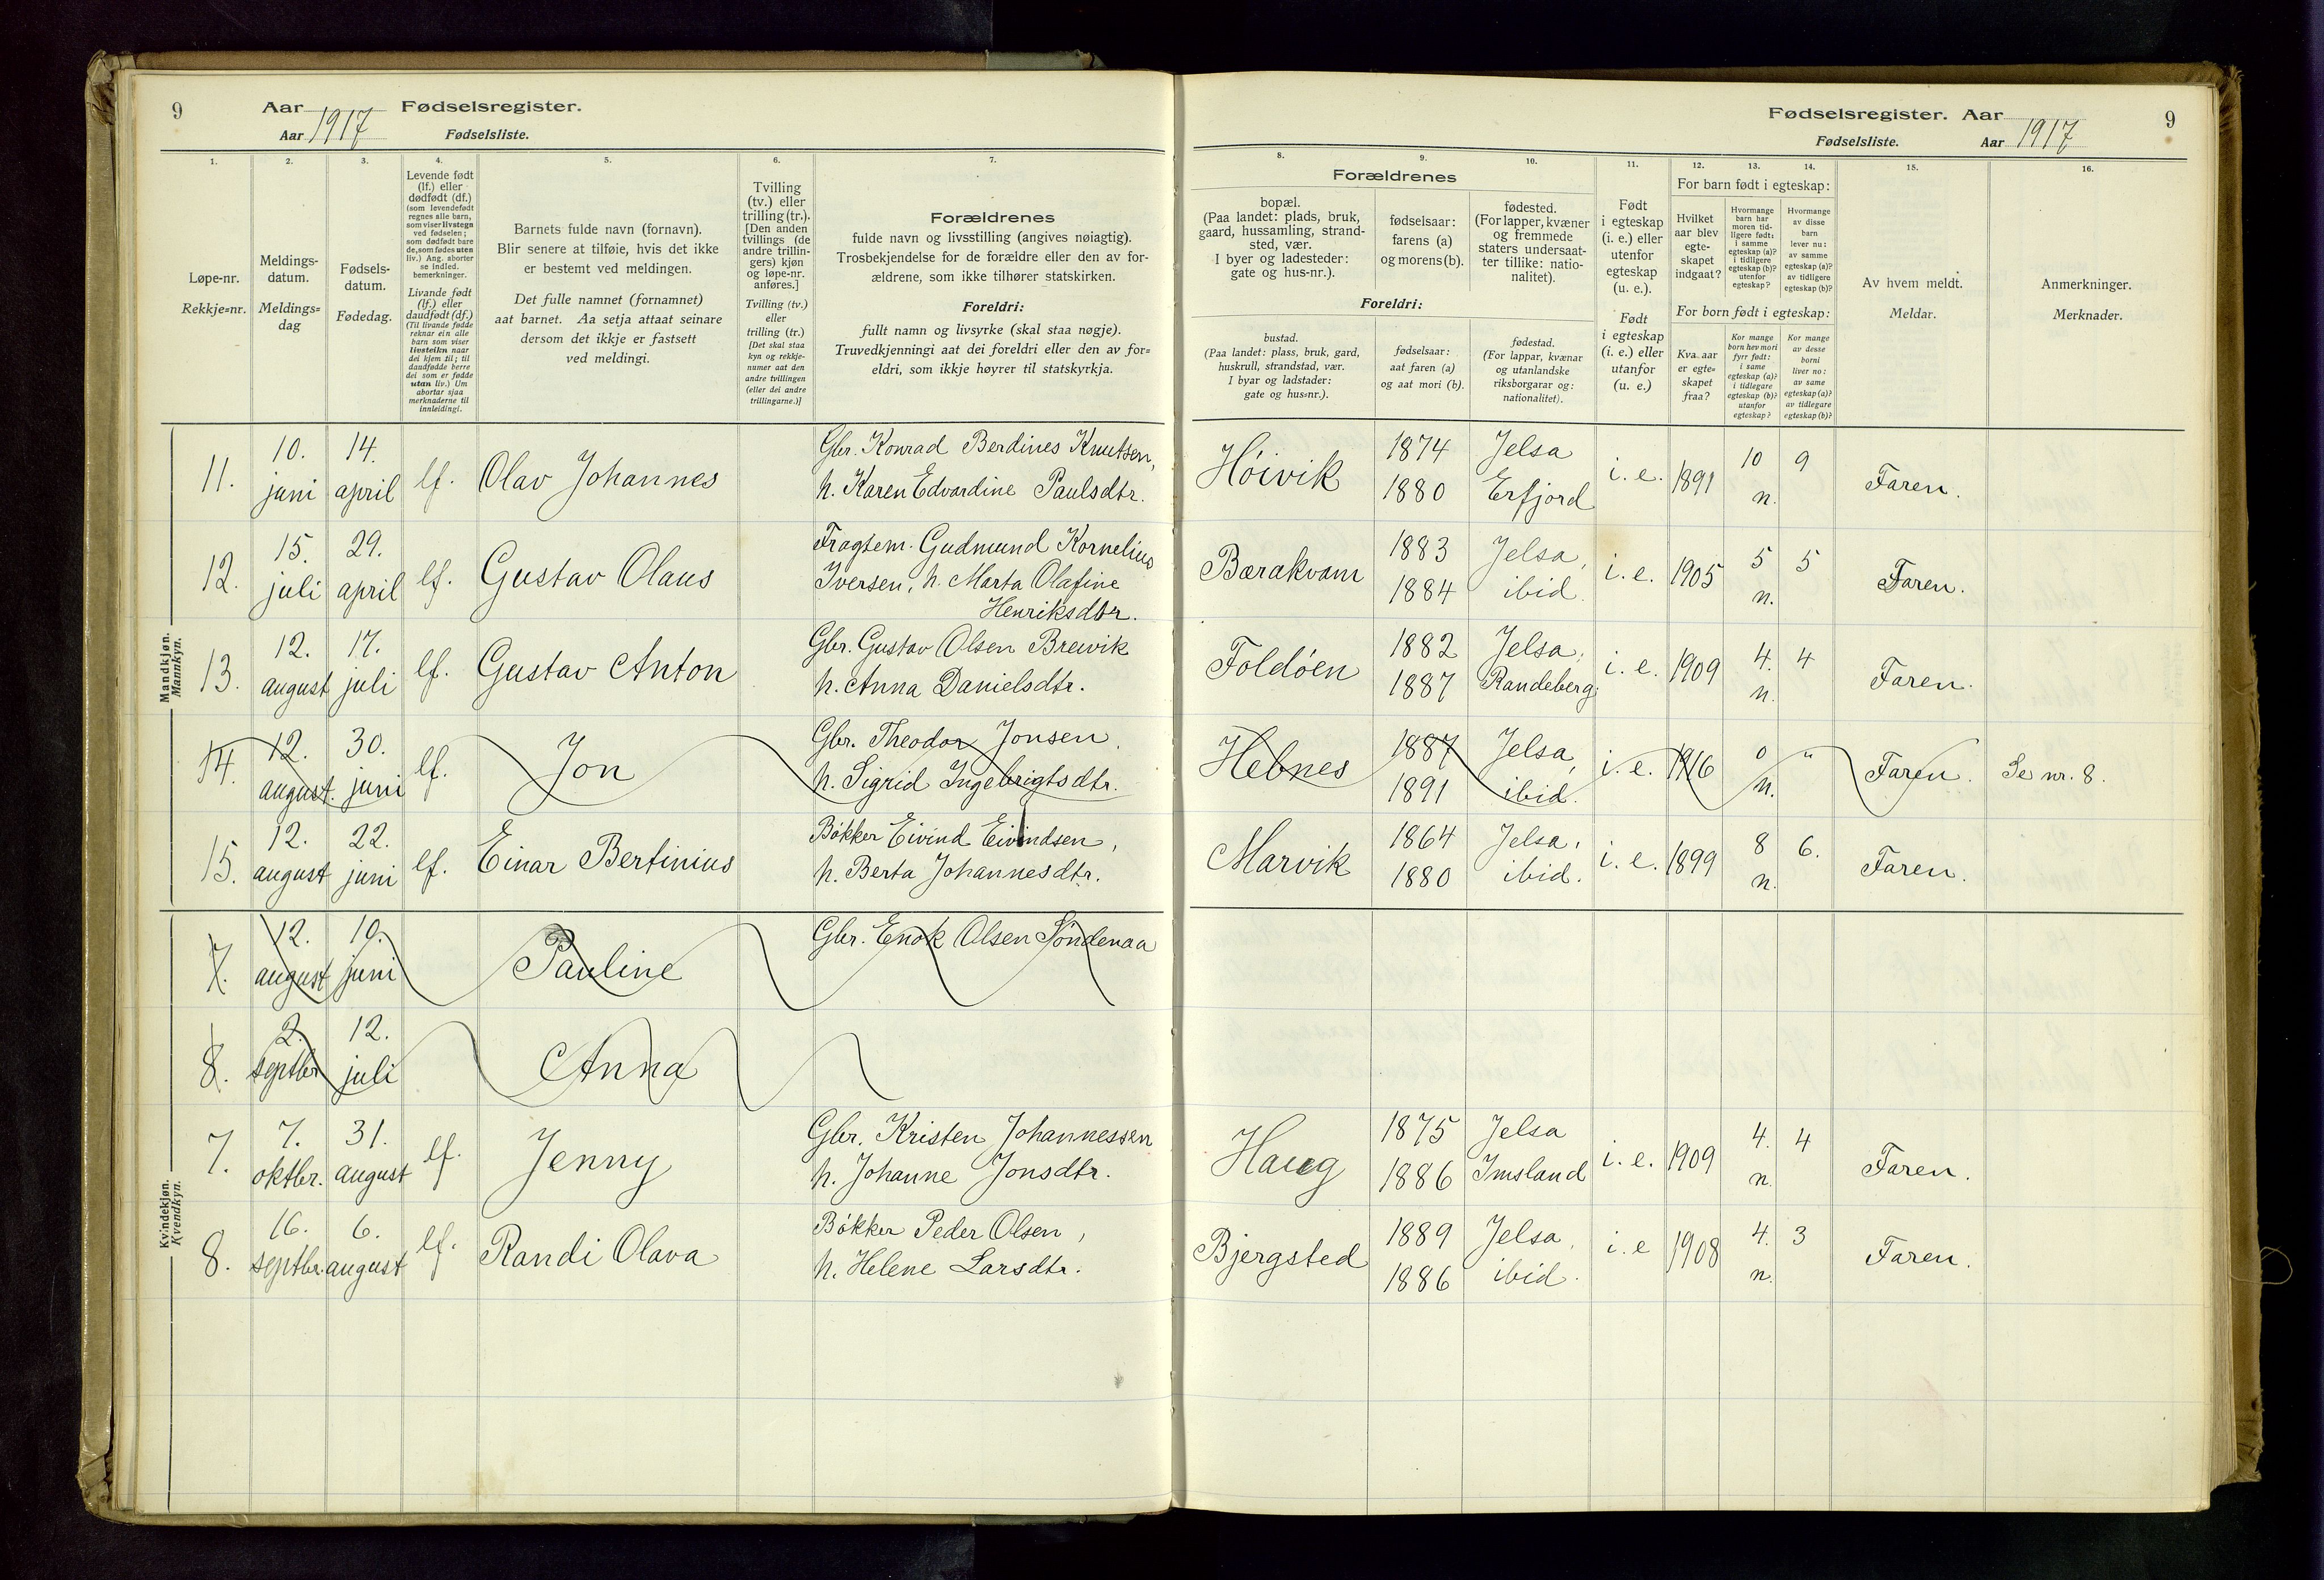 9 Aar 1917 Fødselsregister.
Aar Fødselsliste.
1. 2. 3. 4. 5. 6. 7.
Løpe-nr.
Rekkje=nr.
Meldings-
datum.
Meldings=
dag
Fødsels-
datum.
Fødedag.
Levende født
(lf.) eller
dødfødt (df.)
(som levendefødt
regnes alle barn,
som viser livstegn
ved fødselen;
som dødfødt bare
de, som fødes uten
liv.) Ang. aborter
se indled.
bemerkninger.
Livande født
(lf.) eller
daudfødt (df.)
(Til livande fødde
reknar ein alle
barn som viser
livsteikn naar
dei kjem til; til
daudfødde berre
dei som er fødde
utan liv.) Um
abortar sjaa
merknaderne til
innleidingi.
Barnets fulde navn (fornavn).
Blir senere at tilføie, hvis det ikke
er bestemt ved meldingen.
Det fulle namnet (fornamnet)
aat barnet. Aa setja attaat seinare
dersom det ikkje er fastsett
ved meldingi.
Tvilling
(tv.) eller
trilling (tr.).
[Den anden
tvillings (de
andre trillin-
gers) kjøn
og løpe-nr.
anføres.]
Tvilling (tv.)
eller
trilling (tr.)
[Det skal staa
kyn og rekkje-
numer aat den
andre tvillingen
(eller dei andre
trillingarne.)]
Forældrenes
fulde navn og livsstilling (angives nøiagtig).
Trosbekjendelse for de forældre eller den av for-
ældrene, som ikke tilhører statskirken.
Foreldri:
fullt namn og livsyrke (skal staa nøgje).
Truvedkjenningi aat dei foreldri eller den av for=
eldri, som ikkje høyrer til statskyrkja.
Mandkjøn.
Mannkyn.
11. 10. juni 14. april lf. Olav Johannes Gbr. Konrad Berdines Knutsen,
h. Karen Edvardine Paulsdtr.
12. 15. juli 29. april lf. Gustav Olaus Fragtem. Gudmund Kornelius
Iversen, h. Marta Olafine
Henriksdtr.
13. 12. august 17. juli lf. Gustav Anton Gbr. Gustav Olsen Brewik
h. Anna Danielsdtr.
14. 12. august. 30. juni lf. Jon Gbr. Theodor Jonsen,
h. Sigrid Ingebrigtsdtr.
15. 12. august 22. juni lf. Einar Bertinius Bøkker Eivind Eivindsen,
h. Berta Johannesdtr.
Kvindekjøn.
Kvendkyn.
7. 12. august 10. juni Pauline Gbr. Enok Olsen Søndenaa
8. 2. septbr 12. juli Anna
7. 7. oktbr. 31. august lf. Jenny Gbr. Kristen Johannessen
h. Johanne Jonsdtr.
8. 16. septbr. 6. august lf. Randi Olava Bøkker Peder Olsen,
h. Helene Larsdtr.
Fødselsregister. Aar 1917 9
Fødselsliste. Aar
8. 9. 10. 11. 12. 13. 14. 15. 16.
Forældrenes
bopæl.
(Paa landet: plads, bruk,
gaard, hussamling, strand-
sted, vær.
I byer og ladesteder:
gate og hus-nr.).
fødselsaar:
farens (a)
og morens (b).
fødested.
(For lapper, kvæner
og fremmede
staters undersaat-
ter tillike: natio-
nalitet).
Foreldri:
bustad.
(Paa landet: plass, bruk, gard,
huskrull, strandstad, vær.
I byar og ladstader:
gate og hus=nr.).
fødselsaar:
aat faren (a)
og aat mori (b).
fødestad.
(For lappar, kvænar
og utanlandske
riksborgarar og:
nationalitet).
Født
i egteskap
(i. e.) eller
utenfor
egteskap
(u. e.).
Født
i egteskap
(i. e.) eller
utanfor
egteskap
(u. e.)
For barn født i egteskap:
Hvilket
aar blev
egte-
skapet
indgaat?
Hvormange
barn har
moren tid-
ligere født:
i samme
egteskap (a)?
i tidligere
egteskap (b)?
utenfor
egteskap?
Hvormange
av disse
barn
lever nu:
av samme
egteskap (a)?
av tidligere
egteskap (b)?
For born født i egteskap:
Kva aar
er egte=
skapet
fraa?
Kor mange
born hev mori
fyrr født:
i same
egteskap (a)?
i tidlegare
egteskap (b)?
utanfor
egteskap?
Kor mange
av desse
borni
liver no:
av same
egteskap (a)?
av tidlegare
egteskap (b)?
Av hvem meldt.
Meldar.
Anmerkninger.
Merknader.
Høivik 1874 1880 Jelsa Erfjord i. e. 1891 10 n. 9 Faren.
Bærakvam 1883 1884 Jelsa, ibid. i. e. 1905 5 n. 5 Faren.
Foldøen 1882 1887 Jelsa, Randeberg. i. e. 1909 4. n. 4 Faren.
Hebnes 1887 1891 Jelsa, ibid. i. e. 1916 0 n. " Faren. Se nr. 8.
Marvik 1864 1880 Jelsa, ibid. i. e. 1899 8 n. 6. Faren.
Haug 1875 1886 Jelsa Imsland i. e. 1909 4. n. 4 Faren.
Bjergsted 1889 1886 Jelsa, ibid. i. e 1908 4. n. 3 Faren.